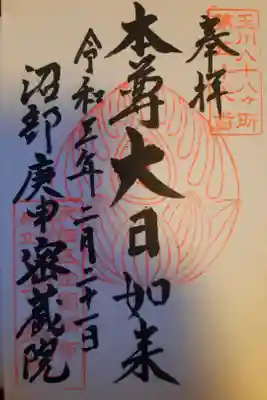 奉拝
玉川八十八ヶ所
本尊大日如来
令和三年二月二十一日
沼部庚申密蔵院